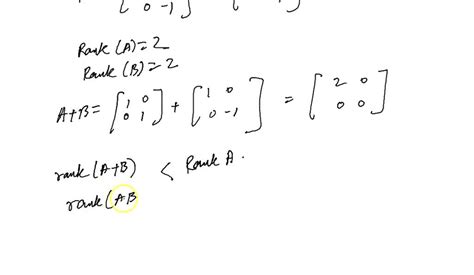 0 -1
Rank(A)=2
Rank(B)=2
A+B= [1 0 0 1] + [1 0 0 -1] = [2 0 0 0]
rank(A+B) < Rank A.
rank(AB